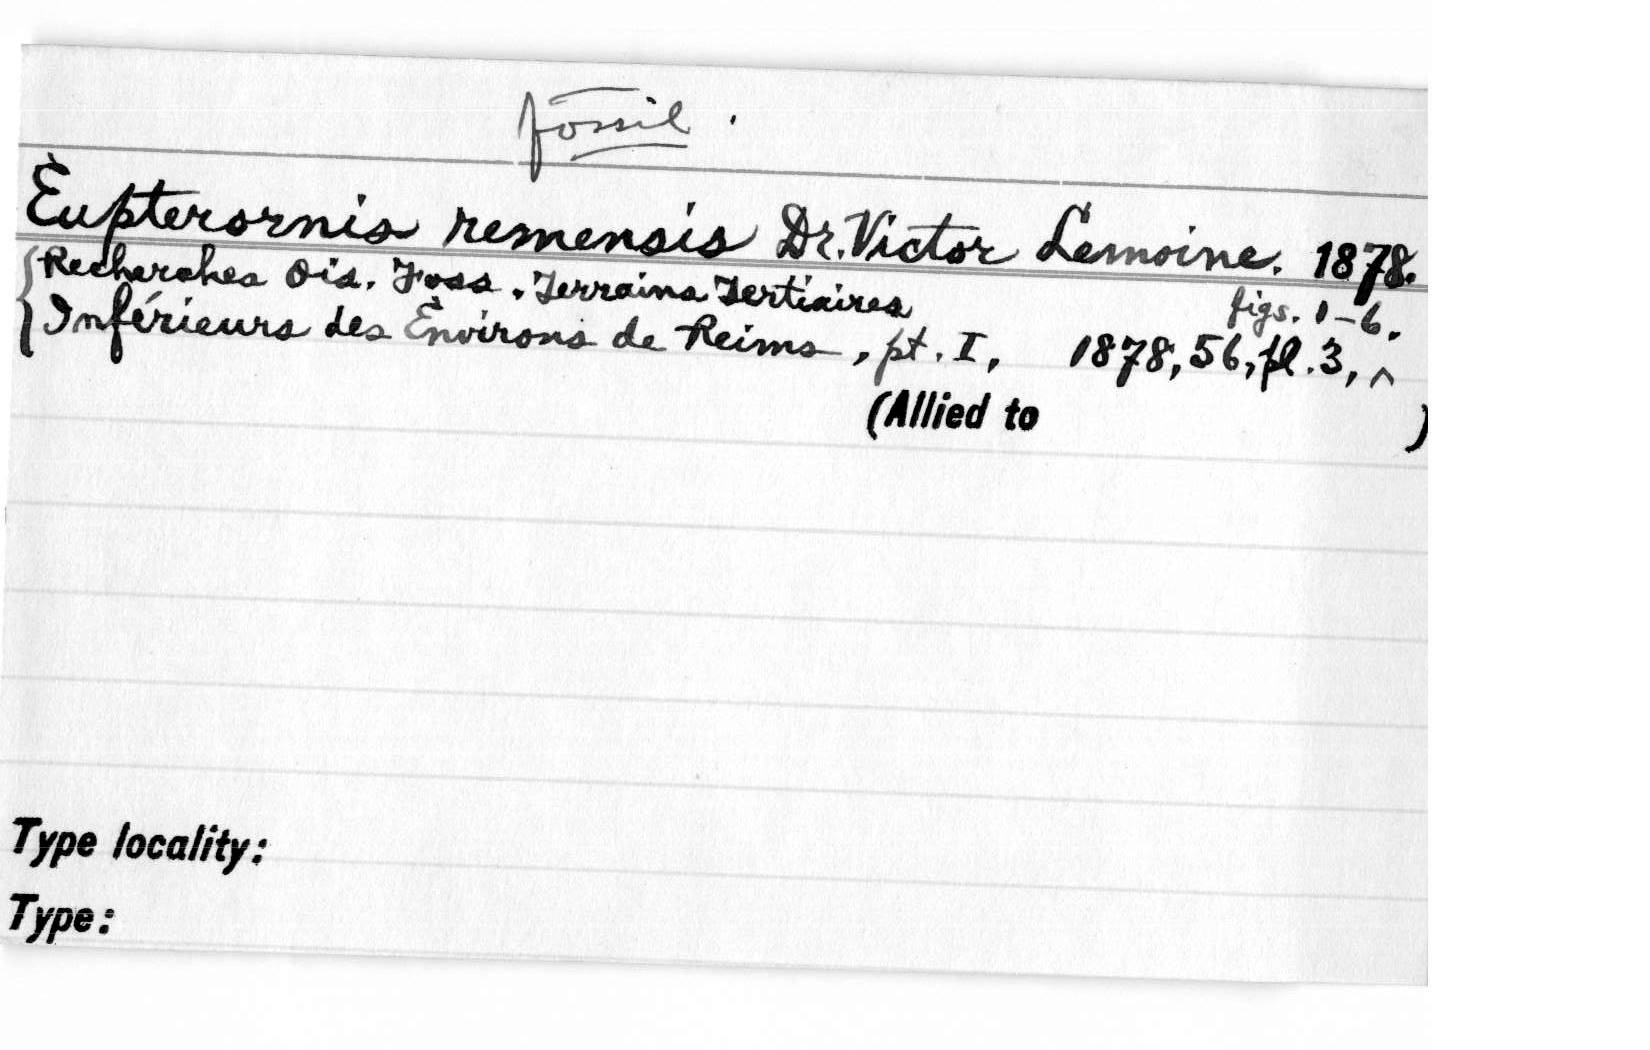 fossil.
Eupterornis remensis Dr. Victor Lemoine. 1878.
Recherches Ois. Foss. Terrains Tertiaires
figs. 1-6.
Inférieurs des Environs de Reims, pt. I, 1878, 56, pl. 3, ^
(Allied to )
Type locality:
Type: